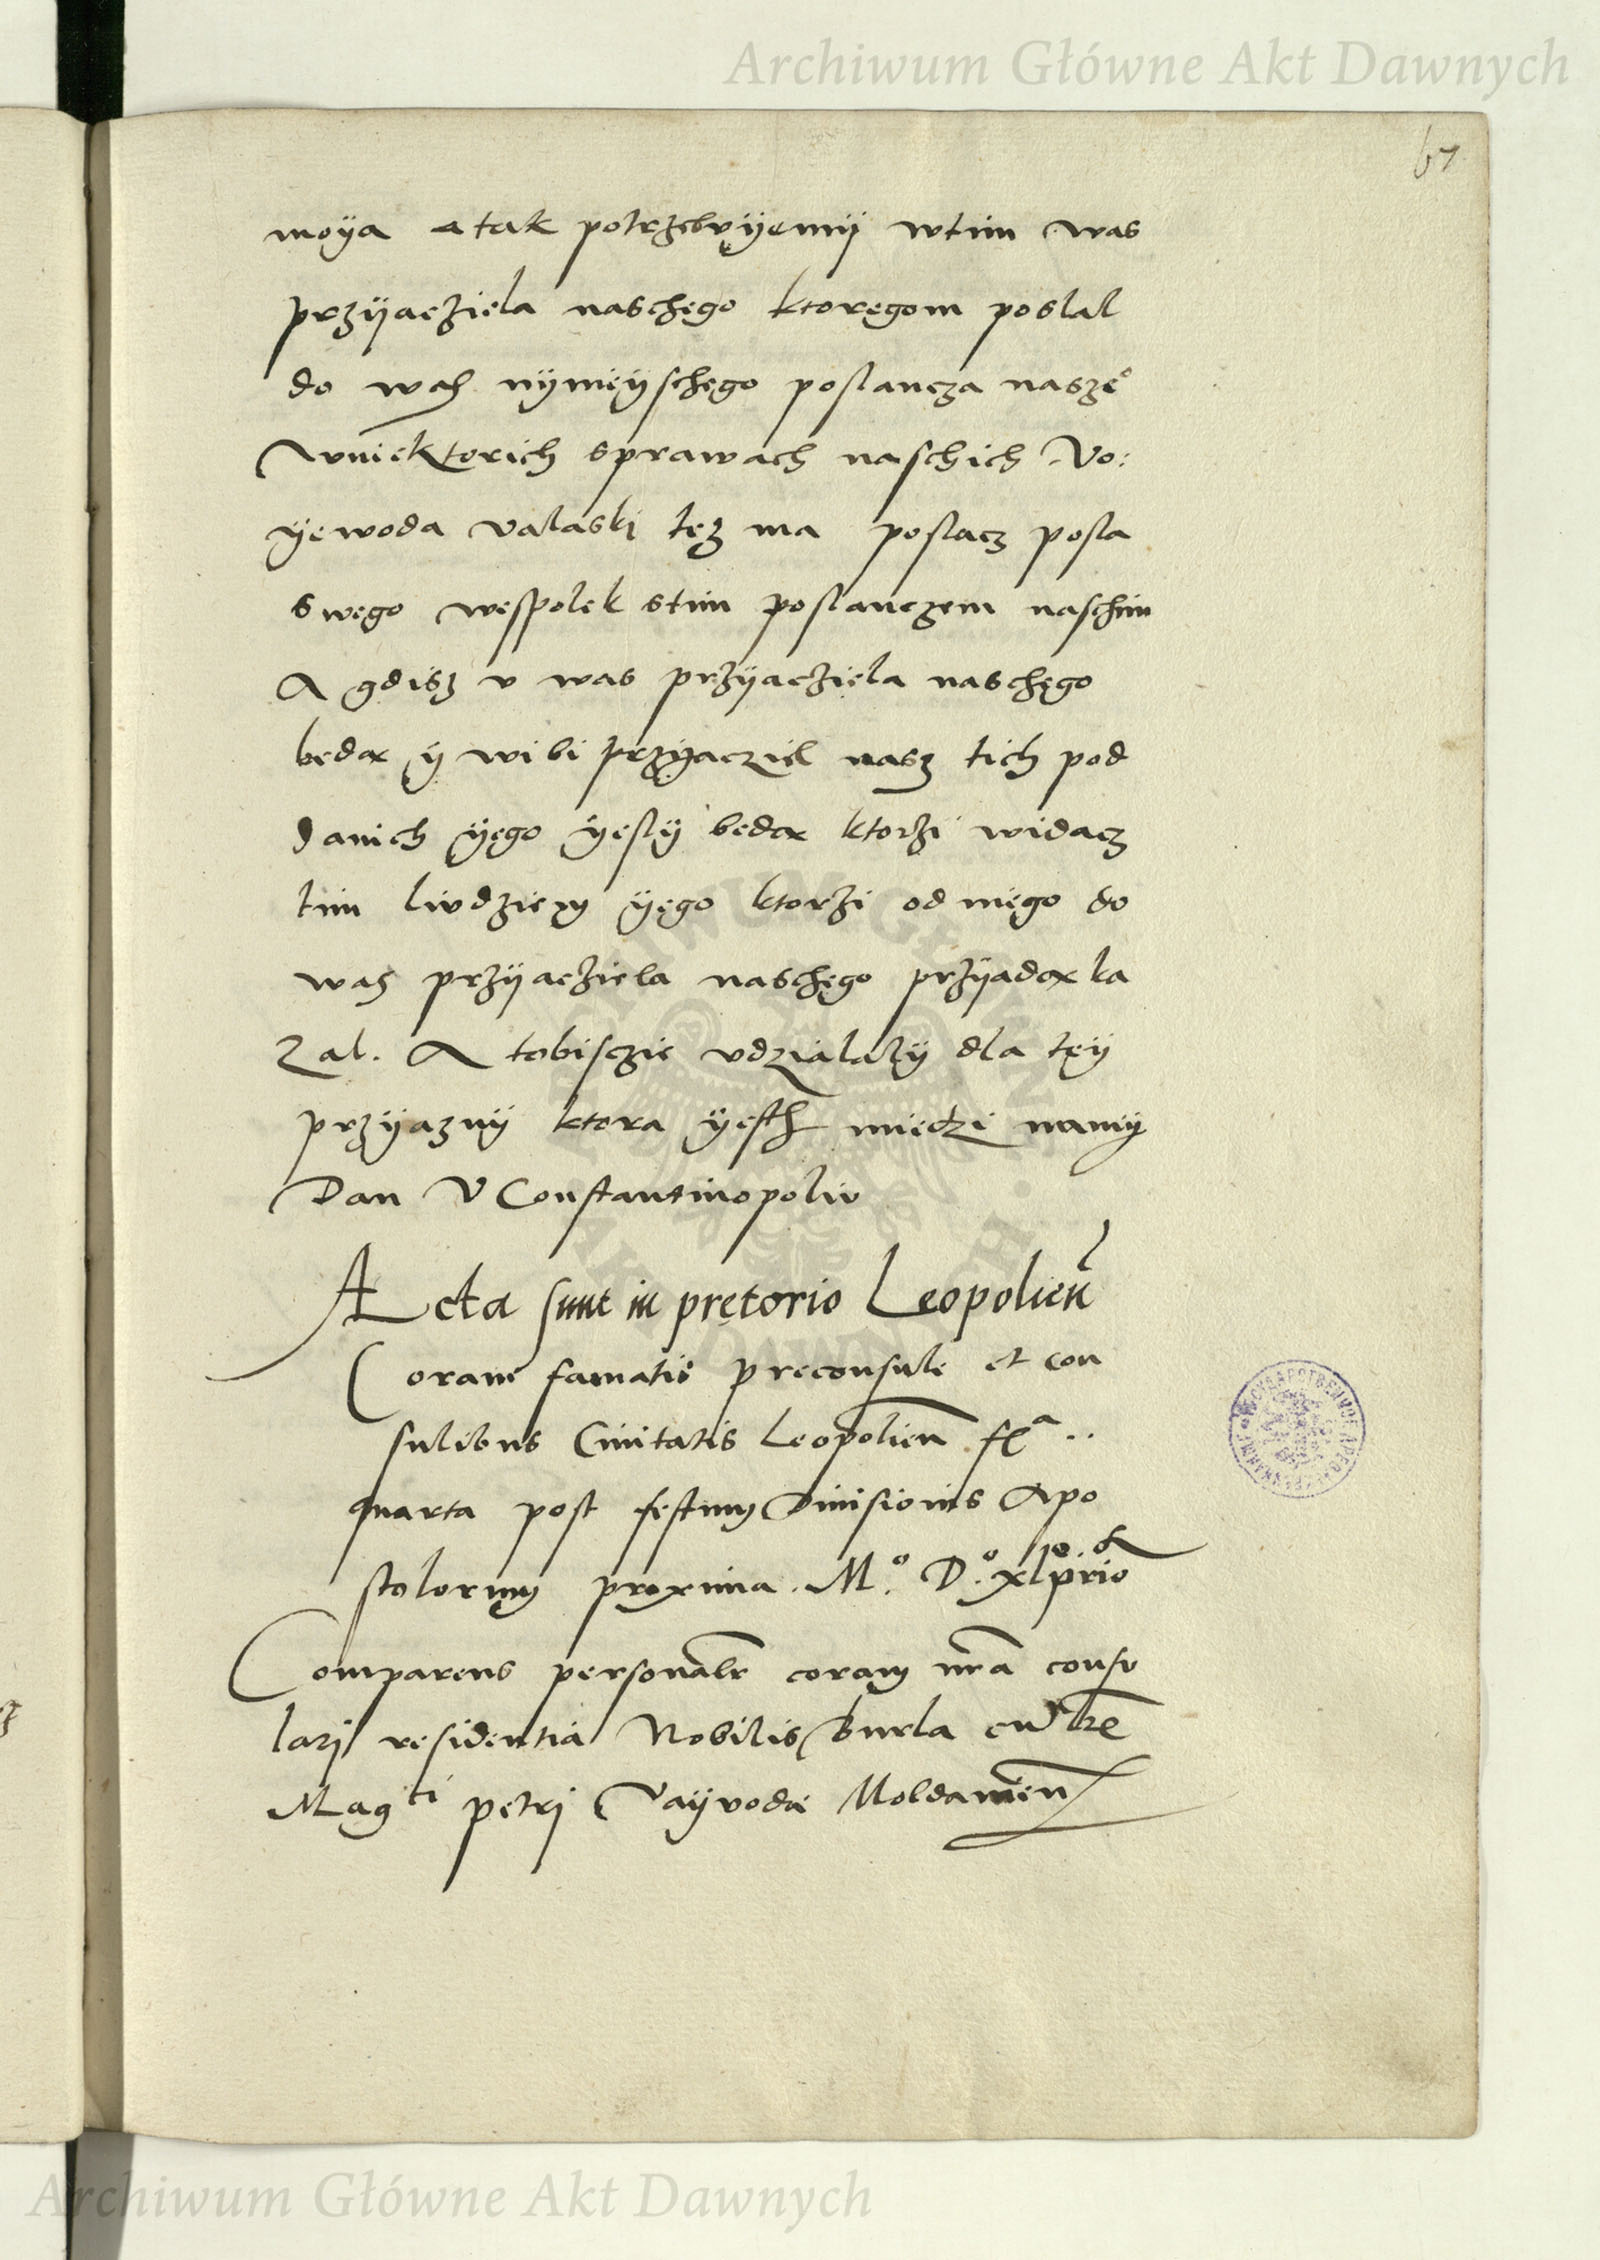 Archiwum Główne Akt Dawnych
67
moÿa a tak potrzebvÿemÿ wtim was
przÿacziela naschęgo ktoręgom poslal
do was nÿnieÿschęgo poslancza naszeº
Wniektorich sprawach naschich Vo:
ÿewoda valaski tęz ma poslacz posla
swęgo wespolek stim poslanczem naschim
A gdisz v was przÿacziela naschęgo
będą ÿ wi bi przÿaczicl nasz tich pod
danich ÿęgo ÿeslÿ będą ktorzi widacz
tim liudziem ÿęgo ktorzi od niego do
was przÿacziela naschęgo przÿadą ka
zal. A tobiszcie vdzialalÿ dla tęÿ
przÿaznÿ ktora ÿesth miedzi namÿ
Dan V Constantinopoliv
Acta sunt in pretorio Leopolien
Coram famatis preconsule et con
sulibus Civitatis Leopolien fᵃ
quarta post festum Divisionis Apo
stolorum proxima. M.º D.º xl prio
Comparens personalr coram nra consu
lari residentia Nobilis Burla cum lre
Magᶜⁱ petri Vaÿvode Moldavien
Archiwum Główne Akt Dawnych